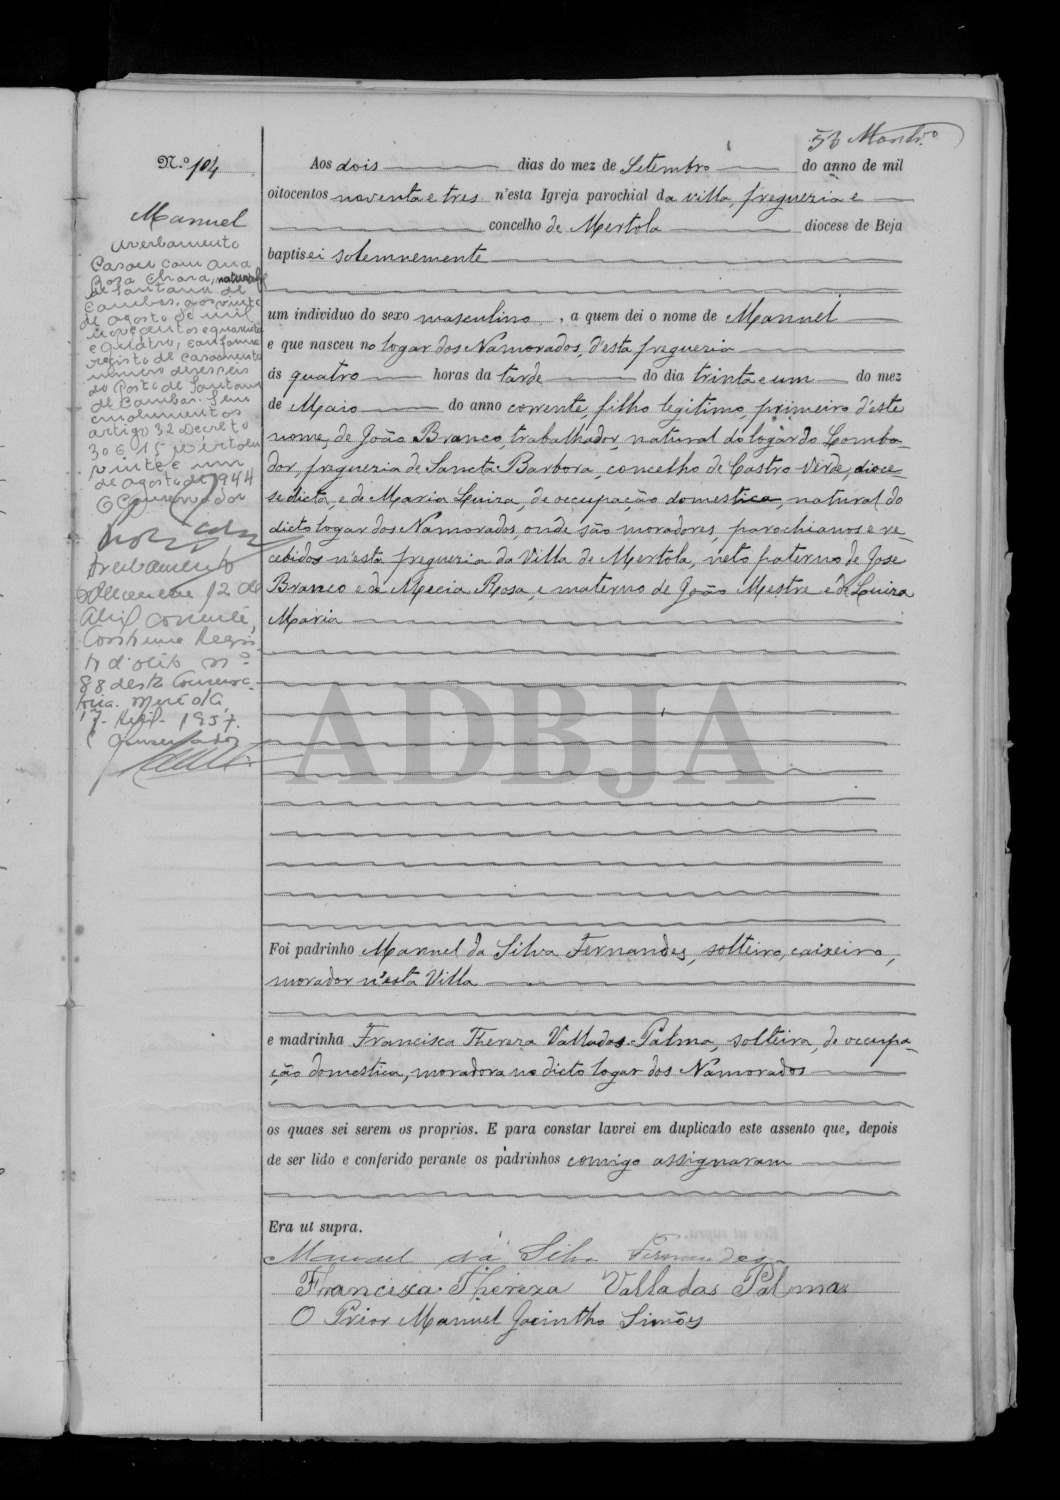 N.º 104
Manuel
Averbamento
Casou com Ana
Rosa Chora, natural
de Santana de
Cambas, aos vinte
de agosto de mil
novecentos e quarenta
e quatro, conforme
registo de casamento
número dezasseis
do Posto de Santana
de Cambas. Sem
emolumentos
artigo 32 Decreto
30615 Mértola
vinte e um
de agosto de 1944
O Conservador
Averbamento
Faleceu em 12 de
Abril corrente,
Conforme Regis-
to d'obito nº
88 desta Conserva-
tória. Mértola,
17 - Abril - 1957.
O Conservador
53
Aos dois dias do mez de Setembro do anno de mil
oitocentos noventa e tres n'esta Igreja parochial da villa, freguezia e
concelho de Mertola diocese de Beja
baptisei solemnemente
um individuo do sexo masculino, a quem dei o nome de Manuel
e que nasceu no logar dos Namorados, d'esta freguezia
ás quatro horas da tarde do dia trinta e um do mez
de Maio do anno corrente, filho legitimo, primeiro d'este
nome, de João Branco, trabalhador, natural do logar do Lomba-
dor, freguezia de Sancta Barbora, concelho de Castro Verde, dioce-
se dicta, e de Maria Luiza, de occupação domestica, natural do
dicto logar dos Namorados, onde são moradores, parochianos e re-
cebidos n'esta freguezia da Villa de Mertola, neto paterno de José
Branco e de Mecia Rosa, e materno de João Mestre e de Luiza
Maria
ADBJA
Foi padrinho Manuel da Silva Fernandes, solteiro, caixeiro,
morador n'esta Villa
e madrinha Francisca Thereza Valladas Palma, solteira, de occupa-
ção domestica, moradora no dicto logar dos Namorados
os quaes sei serem os proprios. E para constar lavrei em duplicado este assento que, depois
de ser lido e conferido perante os padrinhos comigo assignaram
Era ut supra.
Manuel da Silva Fernandes
Francisca Thereza Valladas Palma
O Prior Manuel Jacintho Simões